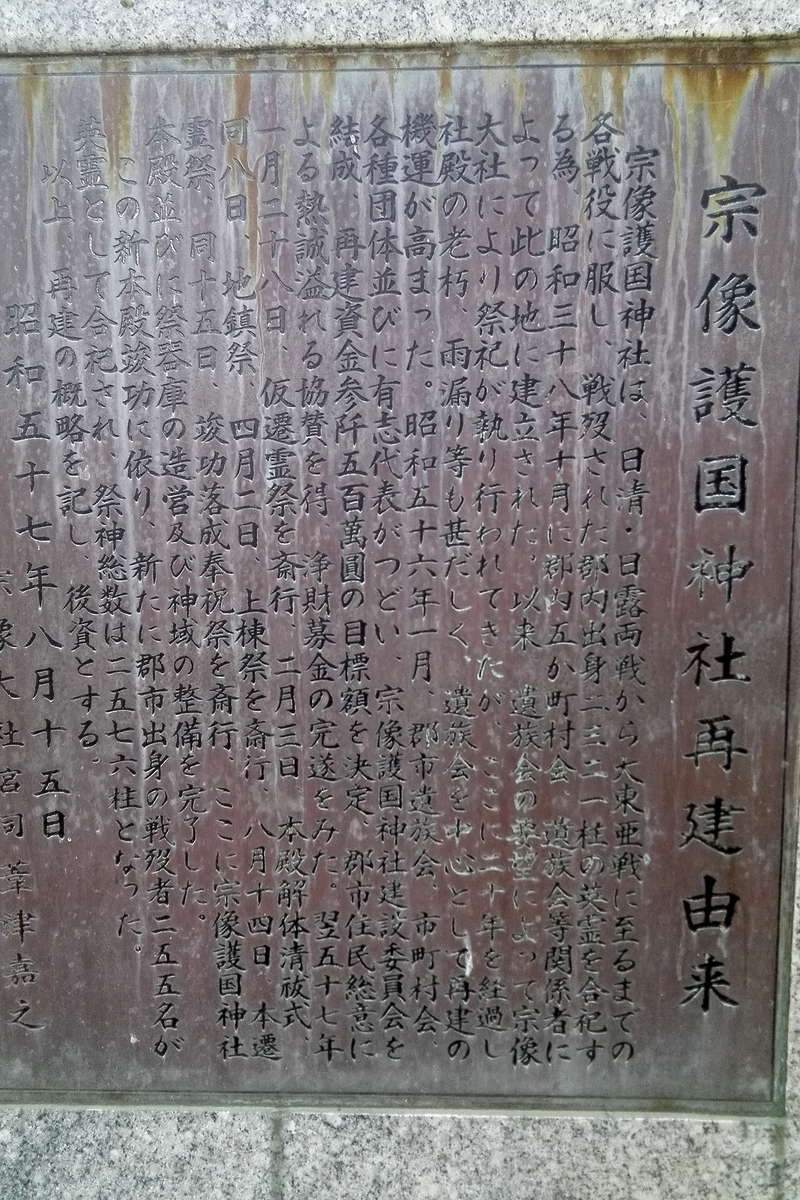 宗像護国神社再建由来
宗像護国神社は、日清・日露両戦から大東亜戦に至るまでの
各戦役に服し、戦歿された郡内出身二三二一柱の英霊を合祀す
る為、昭和三十八年十月に郡内五か町村会、遺族会等関係者に
よって此の地に建立された。以来、遺族会の要望によって宗像
大社により祭祀が執り行われてきたが、ここに二十年を経過し
社殿の老朽、雨漏り等も甚だしく、遺族会を中心として再建の
機運が高まった。昭和五十六年一月、郡市遺族会、市町村会、
各種団体並びに有志代表がつどい、宗像護国神社建設委員会を
結成、再建資金参阡五百萬圓の目標額を決定、郡市住民総意に
よる熱誠溢れる協賛を得、浄財募金の完遂をみた。翌五十七年
一月二十八日、仮遷霊祭を斎行、二月三日、本殿解体清祓式、
同八日、地鎮祭、四月二日、上棟祭を斎行、八月十四日、本遷
霊祭、同十五日、竣功落成奉祝祭を斎行、ここに宗像護国神社
本殿並びに祭器庫の造営及び神域の整備を完了した。
この新本殿竣功に依り、新たに郡市出身の戦歿者二五五名が
英霊として合祀され、祭神総数は二五七六柱となった。
以上、再建の概略を記し、後資とする。
昭和五十七年八月十五日
宗像大社宮司葦津嘉之